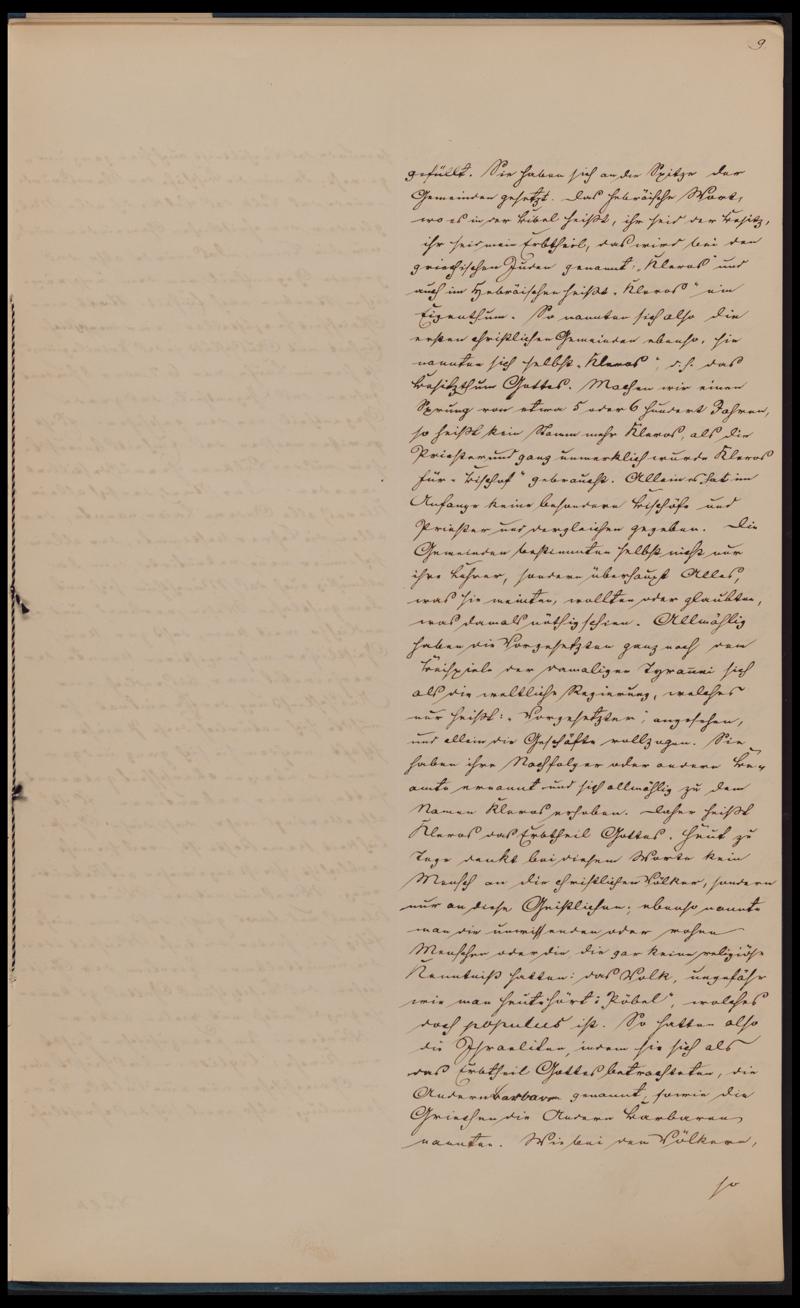 9.
gefüllt. Sie haben sich an die Spitze der
Gemeinden gesetzt. Das hebräische Wort,
wo es in der Bibel heißt, ihr seid der Besitz,
ihr seid mein Erbtheil, das wird bei den
griechischen Juden genannt: „Kleros" und
auch im Hebräischen heißt „Kleros" ein
Eigenthum. So nannten sich also die
ersten christlichen Gemeinden ebenso, sie
nannten sich selbst „Kleros", d. h. das
Besitzthum Gottes. Machen wir einen
Sprung von etwa 5 oder 6 hundert Jahren,
so heißt kein Stamm mehr Kleros, als die
Priester und ganz unmerklich wurde Kleros
für „Bischof" gebraucht. Allein es hat im
Anfange keine besondere Bischöfe und
Priester und dergleichen gegeben. Die
Gemeinden bestimmten selbst nicht nur
ihre Lehrer, sondern überhaupt Alles,
was sie meinten, wollten oder glaubten,
was damals nöthig schien. Allmählig
haben die Vorgesetzten ganz nach dem
Beispiele der damaligen Tyrannei sich
als die weltliche Regierung, welches
nur heißt: „Vorgesetzter", angesehen,
und allein die Geschäfte vollzogen. Sie
haben ihre Nachfolger oder andere Be-
amte ernannt und sich allmählig zu dem
Namen Kleros erhoben. Daher heißt
Kleros das Erbtheil Gottes. Heut zu
Tage denkt bei diesem Worte kein
Mensch an die christlichen Völker, sondern
nur an diese Geistlichen; ebenso nannte
man die unwissenden oder rohen
Menschen oder die die gar keine religiöse
Kenntniß hatten: das Volk, ungefähr
wie man heute hört: „Pöbel", welches
doch populus ist. So hatten also
die Israeliten, indem sie sich als
das Erbtheil Gottes betrachteten, die
Andern Barbaren genannt, sowie die
Griechen die Andern Barbaren
nannten. Wie bei den Völkern,
so